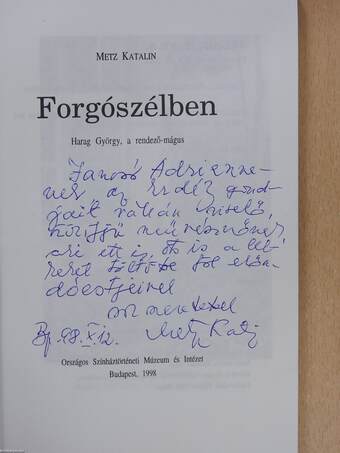 METZ KATALIN
Forgószélben
Harag György, a rendező-mágus
Jancsó Adrienne-
nek az Erdély gond-
jait vállán viselő,
művésznőnek
aki itt is, ott is a
töltötte föl előa-
dóestjeivel
szeretettel
Bp. 98. XI. 12. Metz Kati
Országos Színháztörténeti Múzeum és Intézet
Budapest, 1998